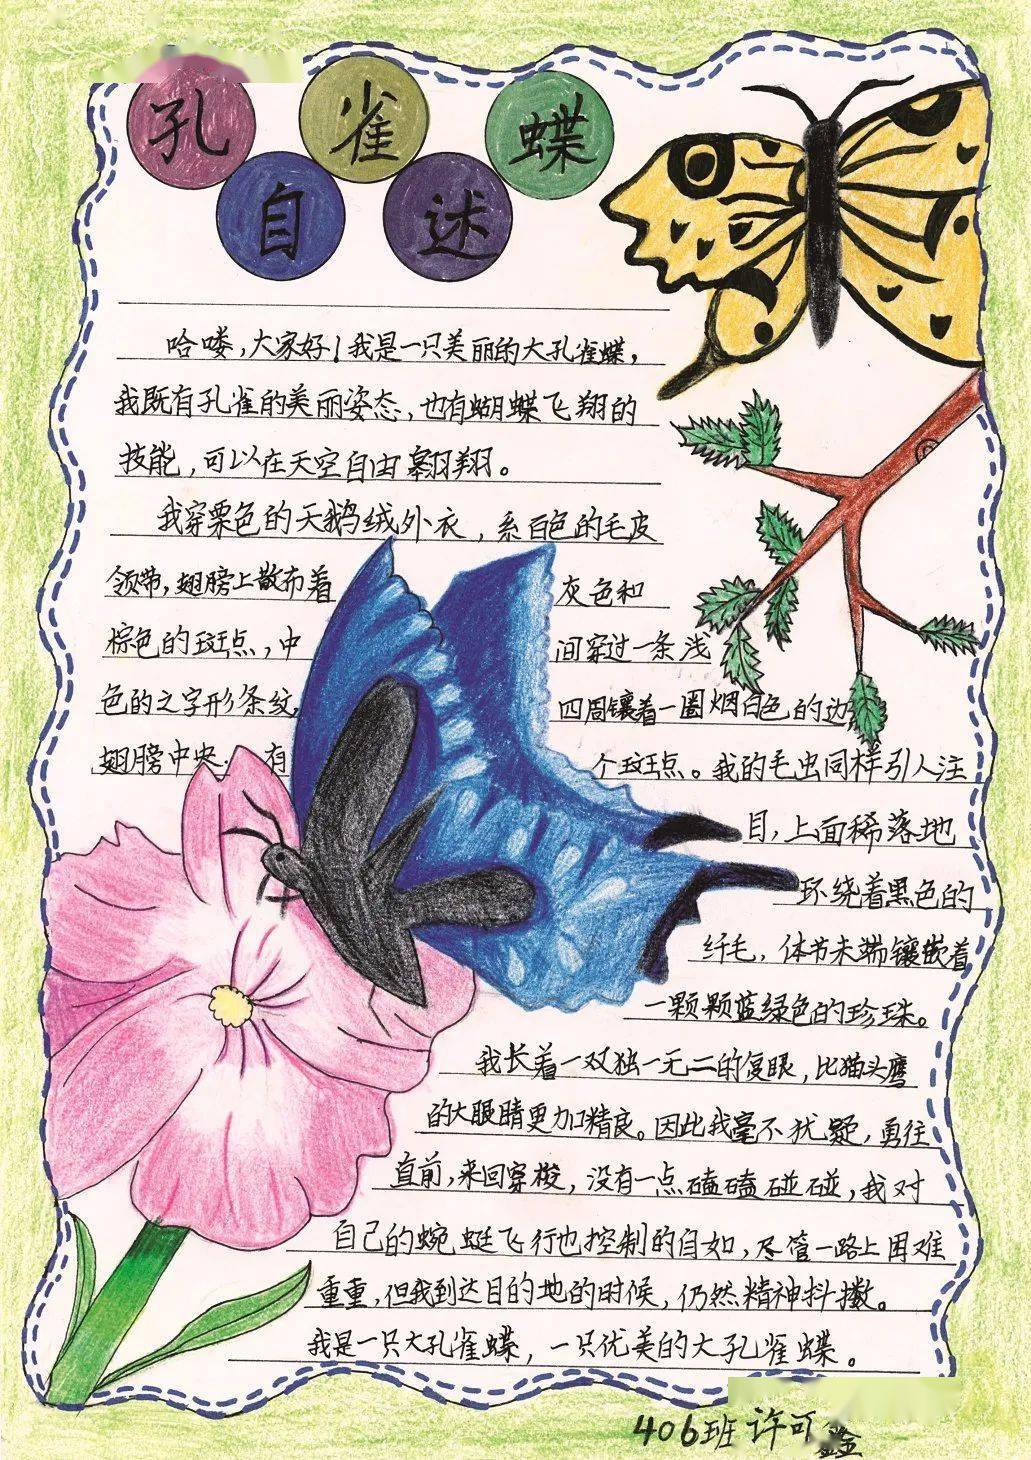 孔雀蝶
自述
哈喽，大家好！我是一只美丽的大孔雀蝶，
我既有孔雀的美丽姿态，也有蝴蝶飞翔的
技能，可以在天空自由翱翔。
我穿栗色的天鹅绒外衣，系白色的毛皮
领带，翅膀上散布着 灰色和
棕色的斑点，中 间穿过一条浅
色的之字形条纹， 四周镶着一圈烟白色的边
翅膀中央 有 个斑点。我的毛虫同样引人注
目，上面稀落地
环绕着黑色的
纤毛，体节末端镶嵌着
一颗颗蓝绿色的珍珠。
我长着一双独一无二的复眼，比猫头鹰
的大眼睛更加精良。因此我毫不犹疑，勇往
直前，来回穿梭，没有一点磕磕碰碰，我对
自己的蜿蜓飞行也控制的自如，尽管一路上困难
重重，但我到达目的地的时候，仍然精神抖擞。
我是一只大孔雀蝶，一只优美的大孔雀蝶。
406班 许可